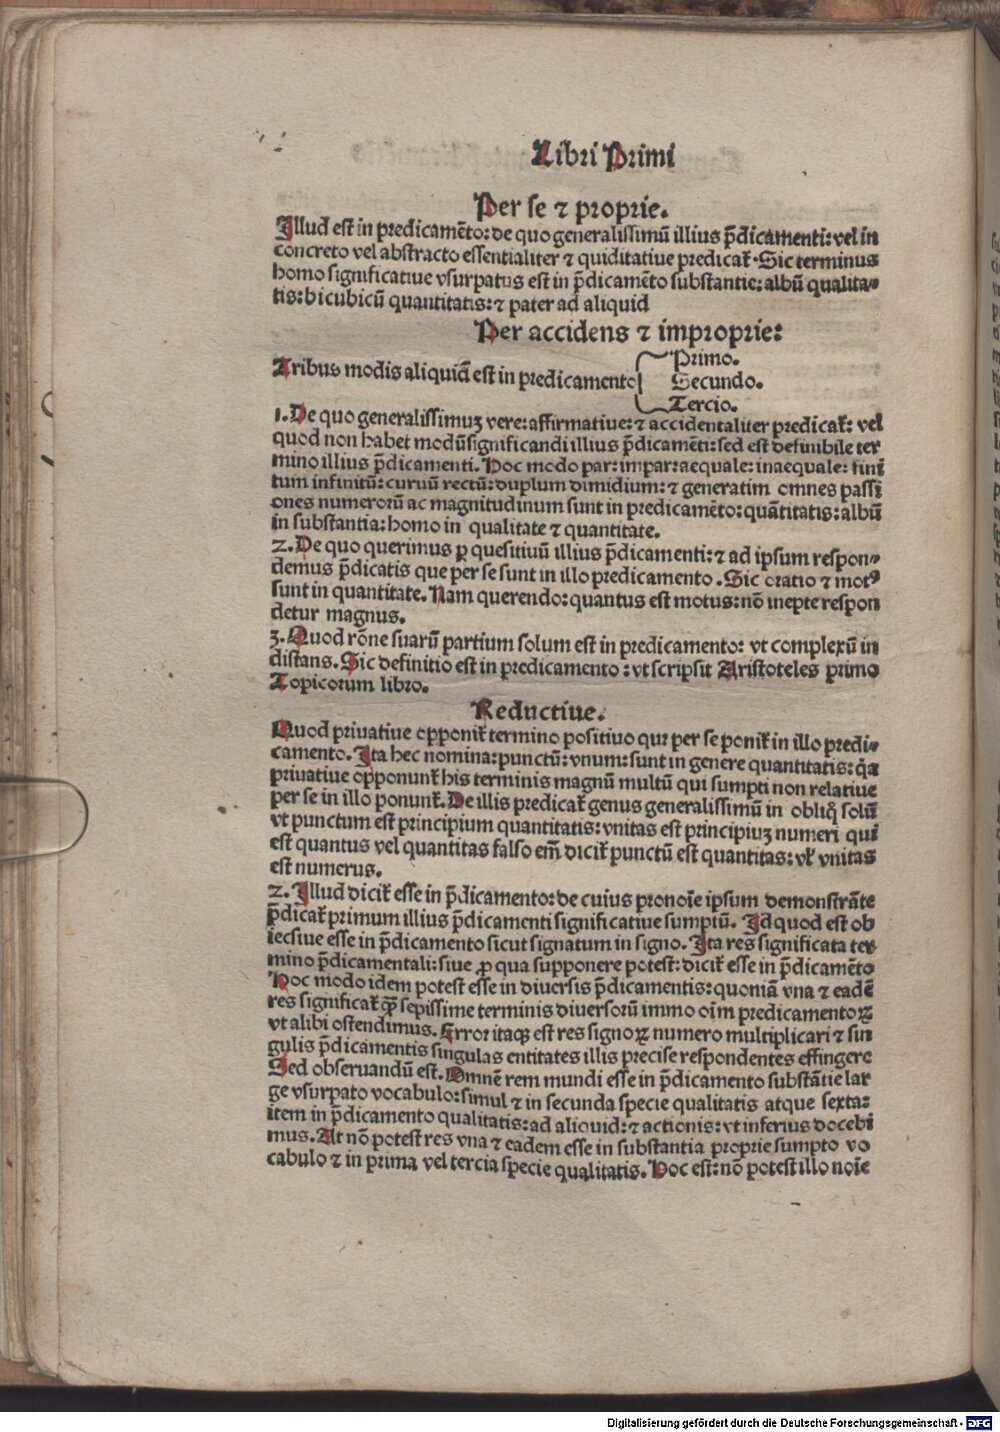 Libri Primi
Per se ⁊ proprie.
Illud est in predicamẽto: de quo generalissimũ illius p̃dicamenti: vel in
concreto vel abstracto essentialiter ⁊ quiditatiue predicat̃. Sic terminus
homo significatiue vsurpatus est in p̃dicamẽto substantie: albũ qualita-
tis: bicubicũ quantitatis: ⁊ pater ad aliquid
Per accidens ⁊ improprie:
Tribus modis aliquid est in predicamento
Primo.
Secundo.
Tercio.
1. De quo generalissimuꝫ vere: affirmatiue: ⁊ accidentaliter predicat̃: vel
quod non habet modũ significandi illius p̃dicamẽti: sed est definibile ter
mino illius p̃dicamenti. Hoc modo par: impar: aequale: inaequale: fini
tum infinitũ: curuũ rectũ: duplum dimidium: ⁊ generatim omnes passi
ones numerorũ ac magnitudinum sunt in predicamẽto: quãtitatis: albũ
in substantia: homo in qualitate ⁊ quantitate.
2. De quo querimus ꝑ quesitiuũ illius p̃dicamenti: ⁊ ad ipsum respon-
demus p̃dicatis que per se sunt in illo predicamento. Sic oratio ⁊ motꝰ
sunt in quantitate. Nam querendo: quantus est motus: nõ inepte respon
detur magnus.
3. Quod rõne suarũ partium solum est in predicamento: vt complexũ in
distans. Sic definitio est in predicamento: vt scripsit Aristoteles primo
Topicorum libro.
Reductiue.
Quod priuatiue opponit̃ termino positiuo qui per se ponit̃ in illo predi-
camento. Ita hec nomina: punctũ: vnum: sunt in genere quantitatis: q̃a
priuatiue opponunt̃ his terminis magnũ multũ qui sumpti non relatiue
per se in illo ponunt̃. De illis predicat̃ genus generalissimũ in obliq̃ solũ
vt punctum est principium quantitatis: vnitas est principiuꝫ numeri qui
est quantus vel quantitas falso em̃ dicit̃ punctũ est quantitas: vl̃ vnitas
est numerus.
2. Illud dicit̃ esse in p̃dicamento: de cuius pronoĩe ipsum demonstrãte
p̃dicat̃ primum illius p̃dicamenti significatiue sumptũ. Id quod est ob
iectiue esse in p̃dicamento sicut signatum in signo. Ita res significata ter
mino p̃dicamentali: siue ꝓ qua supponere potest: dicit̃ esse in p̃dicamẽto
Hoc modo idem potest esse in diuersis p̃dicamentis: quoniã vna ⁊ eadẽ
res significat̃ qꝫ sepissime terminis diuersorũ immo oĩm predicamentoꝝ
vt alibi ostendimus. Error itaqꝫ est res signoꝝ numero multiplicari ⁊ sin
gulis p̃dicamentis singulas entitates illis precise respondentes effingere
Sed obseruandũ est. Omnẽ rem mundi esse in p̃dicamento substãtie lar
ge vsurpato vocabulo: simul ⁊ in secunda specie qualitatis atque sexta:
item in p̃dicamento qualitatis: ad aliquid: ⁊ actionis: vt inferius docebi
mus. At nõ potest res vna ⁊ eadem esse in substantia proprie sumpto vo
cabulo ⁊ in prima vel tercia specie qualitatis. Hoc est: nõ potest illo noĩe
Digitalisierung gefördert durch die Deutsche Forschungsgemeinschaft - DFG